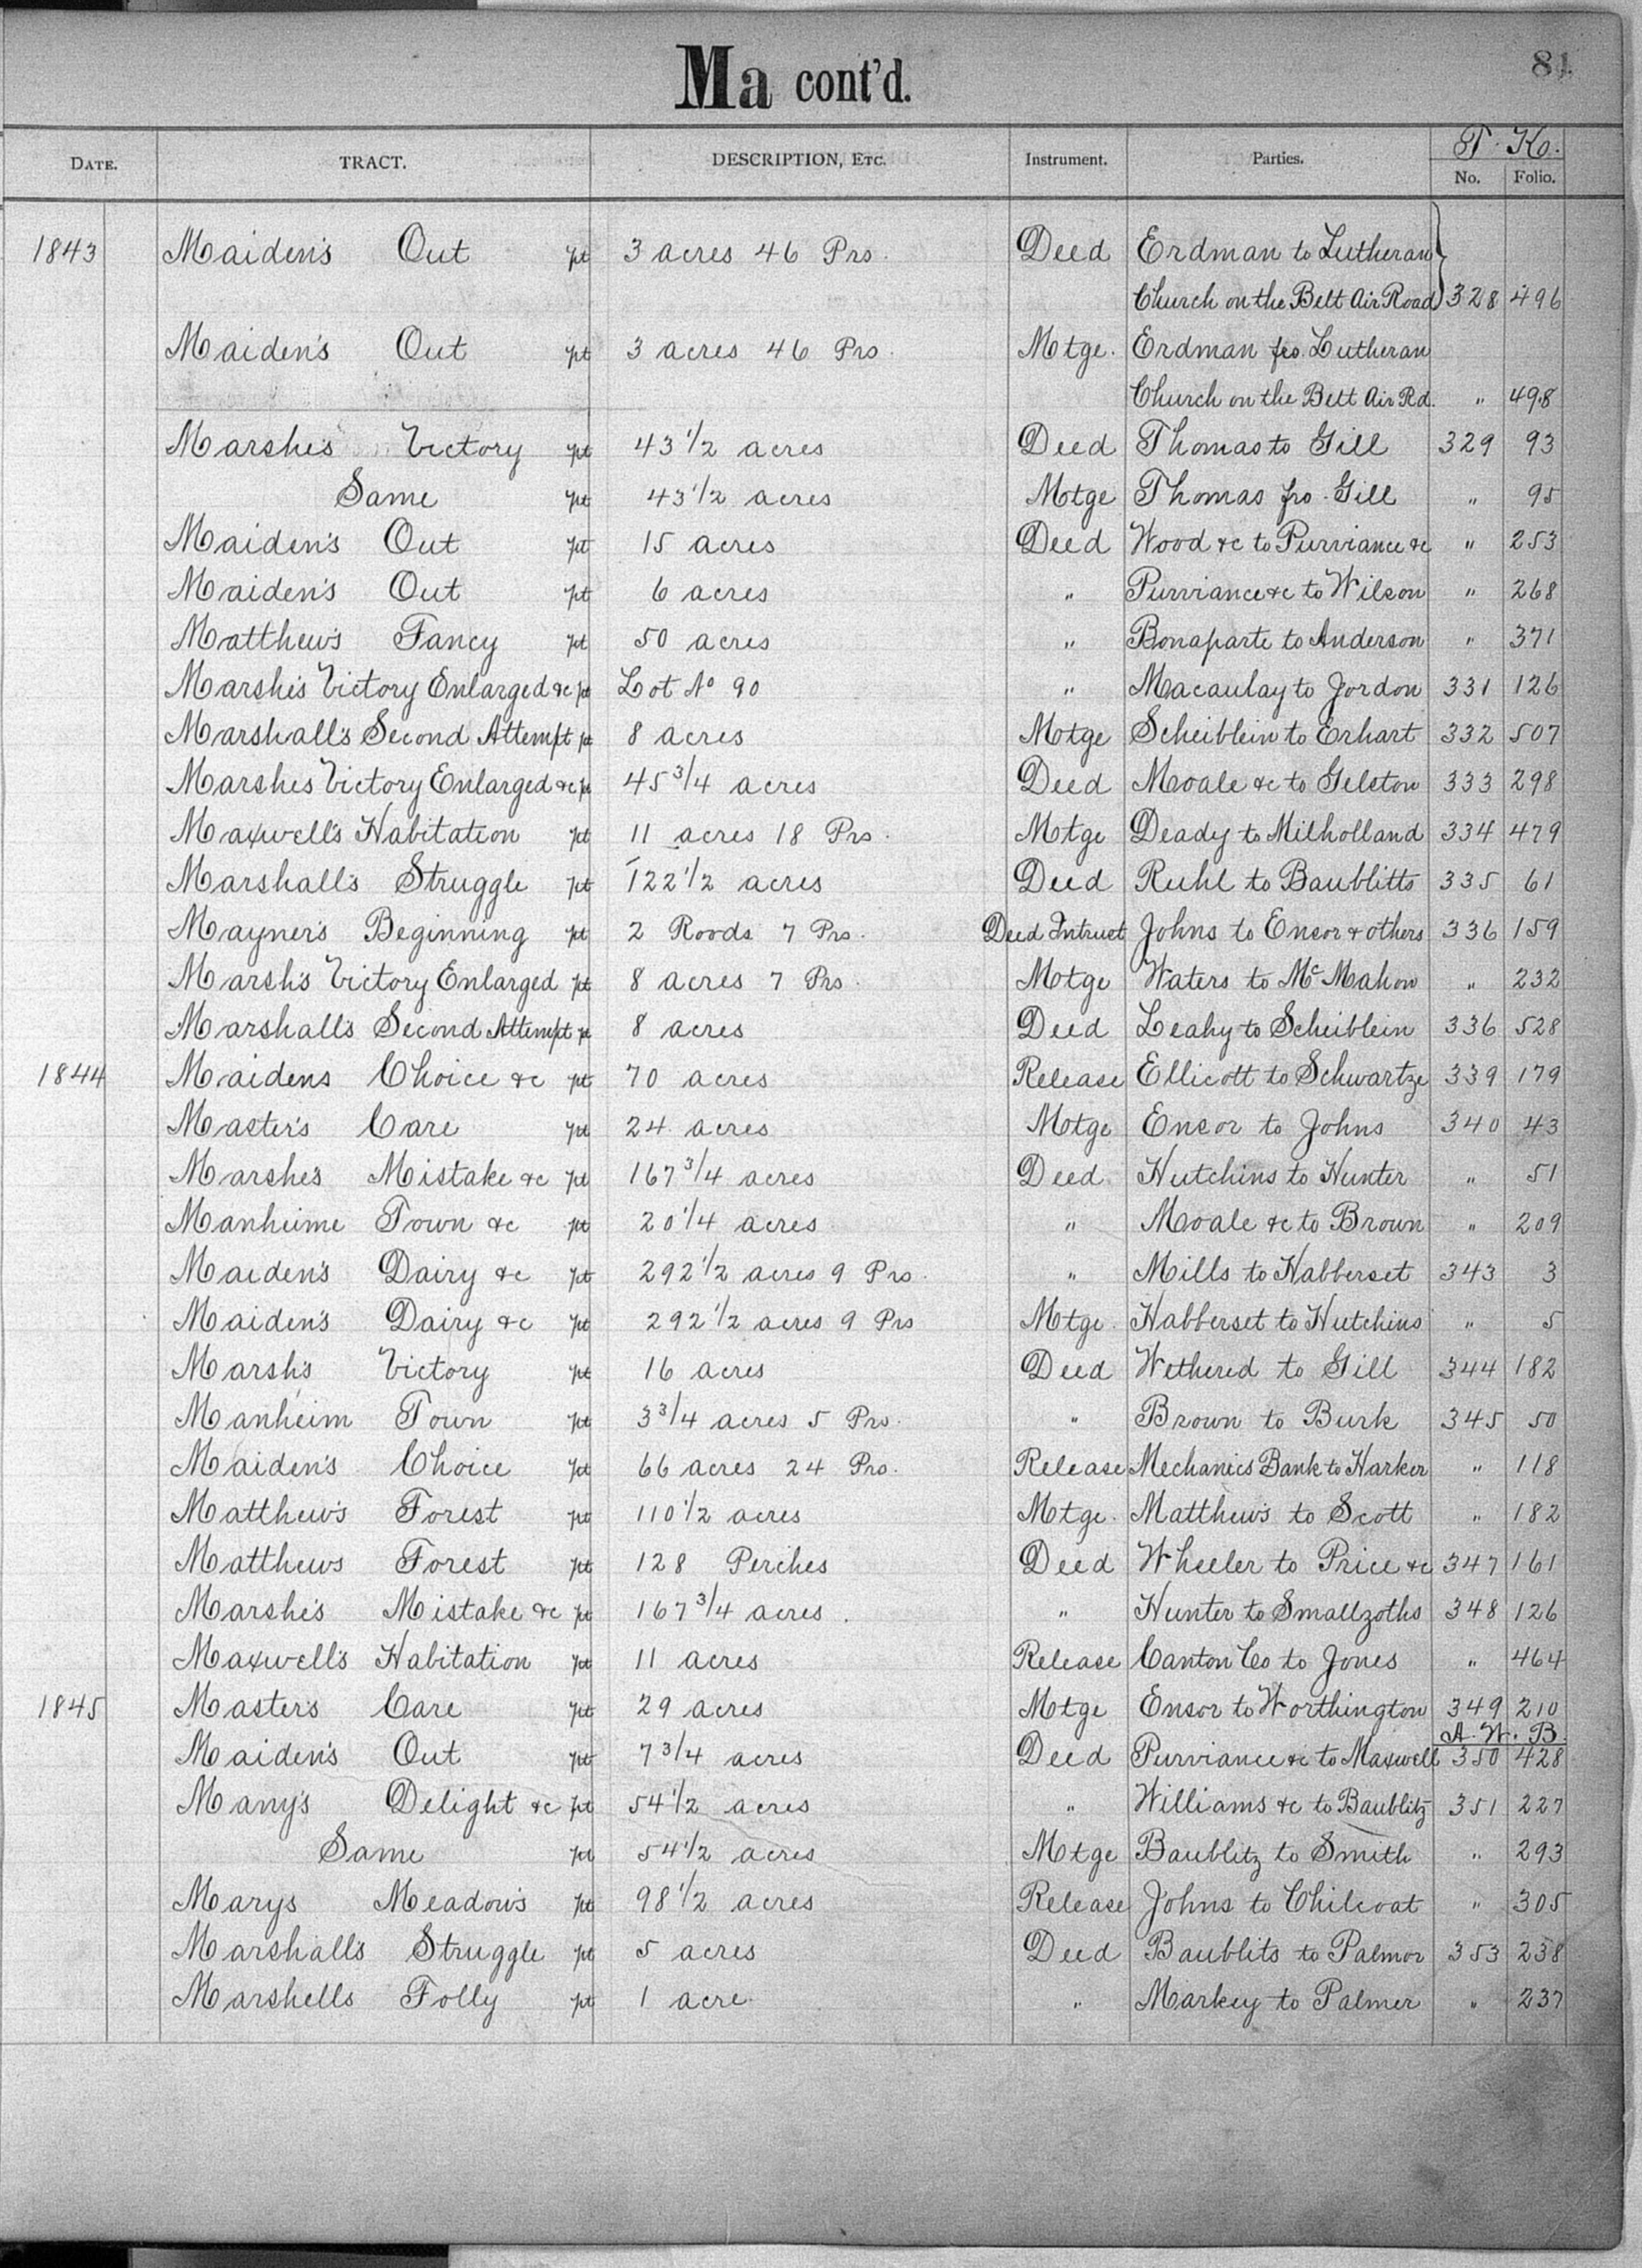 Ma cont'd.
81
DATE. TRACT. DESCRIPTION, ETC. Instrument. Parties. T. K. No. Folio.
1843 Maiden's Out pt 3 acres 46 Prs. Deed Erdman to Lutheran
Church on the Belt Air Road 328 496
Maiden's Out pt 3 acres 46 Prs. Motge. Erdman fro. Lutheran
Church on the Belt Air Rd. " 498
Marshe's Victory pt 43 1/2 acres Deed Thomas to Gill 329 93
Same pt 43 1/2 acres Motge Thomas fro. Gill " 95
Maiden's Out pt 15 acres Deed Wood &c to Purviance &c " 253
Maiden's Out pt 6 acres " Purviance &c to Wilson " 268
Matthew's Fancy pt 50 acres " Bonaparte to Anderson " 371
Marshe's Victory Enlarged &c pt Lot No 90 " Macaulay to Jordon 331 126
Marshall's Second Attempt pt 8 acres Motge Scheiblein to Erhart 332 507
Marshes Victory Enlarged &c pt 45 3/4 acres Deed Moale &c to Gelston 333 298
Maxwell's Habitation pt 11 acres 18 Prs. Motge Deady to Milholland 334 479
Marshall's Struggle pt 122 1/2 acres Deed Ruhl to Baublitts 335 61
Mayner's Beginning pt 2 Roods 7 Prs. Deed Intrust Johns to Ensor & others 336 159
Marsh's Victory Enlarged pt 8 acres 7 Prs. Motge Waters to McMahon " 232
Marshall's Second Attempt pt 8 acres Deed Leahy to Scheiblein 336 528
1844 Maidens Choice &c pt 70 acres Release Ellicott to Schwartze 339 179
Master's Care pt 24 acres Motge Ensor to Johns 340 43
Marshe's Mistake &c pt 167 3/4 acres Deed Hutchins to Hunter " 51
Manheime Town &c pt 20 1/4 acres " Moale &c to Brown " 209
Maiden's Dairy &c pt 292 1/2 acres 9 Prs. " Mills to Habberset 343 3
Maiden's Dairy &c pt 292 1/2 acres 9 Prs Motge. Habberset to Hutchins " 5
Marsh's Victory pt 16 acres Deed Wethered to Gill 344 182
Manheim Town pt 3 3/4 acres 5 Prs. " Brown to Burk 345 50
Maiden's Choice pt 66 acres 24 Prs. Release Mechanics Bank to Harker " 118
Matthew's Forest pt 110 1/2 acres Motge. Matthew's to Scott " 182
Matthews Forest pt 128 Perches Deed Wheeler to Price &c 347 161
Marshe's Mistake &c pt 167 3/4 acres. " Hunter to Smallzoths 348 126
Maxwell's Habitation pt 11 acres Release Canton Co to Jones " 464
1845 Master's Care pt 29 acres Motge Ensor to Worthington 349 210
A. W. B.
Maiden's Out pt 7 3/4 acres Deed Purviance &c to Maxwell 350 428
Many's Delight &c pt 54 1/2 acres " Williams &c to Baublitz 351 227
Same pt 54 1/2 acres Motge Baublitz to Smith " 293
Marys Meadow's pt 98 1/2 acres Release Johns to Chilcoat " 305
Marshall's Struggle pt 5 acres Deed Baublits to Palmor 353 238
Marshells Folly pt 1 acre. " Markey to Palmer " 237